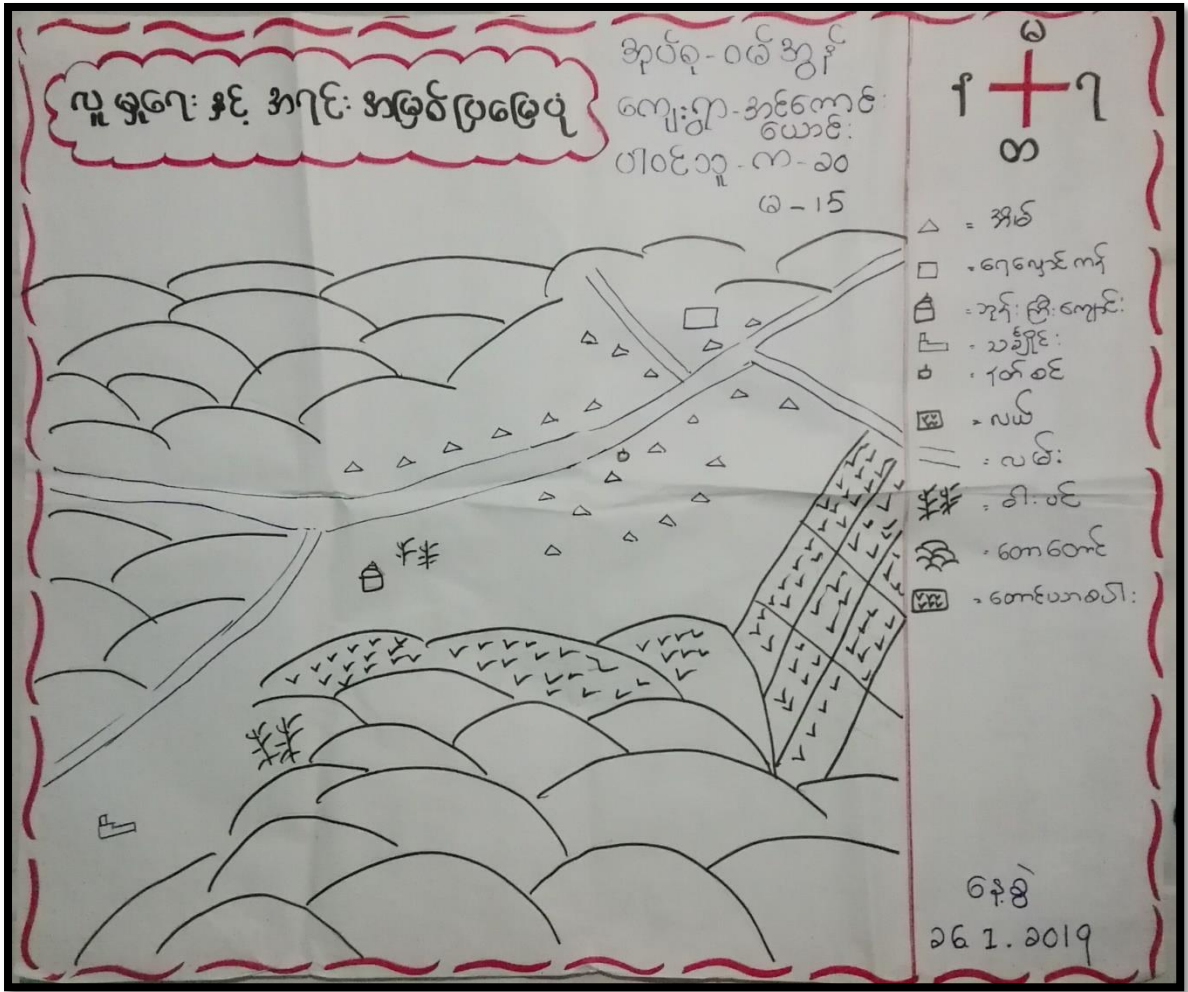 လူမှုရေး နှင့် အရင်းအမြစ်ပြမြေပုံ
အုပ်စု - ဝမ်အွန်
ကျေးရွာ - အင်ကောင်း
ယောင်း
ပါဝင်သူ - က - ၁၀
မ - 15
မ
န
ရ
တ
= အိမ်
= ရေလှောင်ကန်
= ဘုန်းကြီးကျောင်း
= သင်္ချိုင်း
= နတ်စင်
= လယ်
= လမ်း
= ဝါးပင်
= တောတောင်
= တောင်ယာစပါး
နေ့စွဲ
26.1.2019